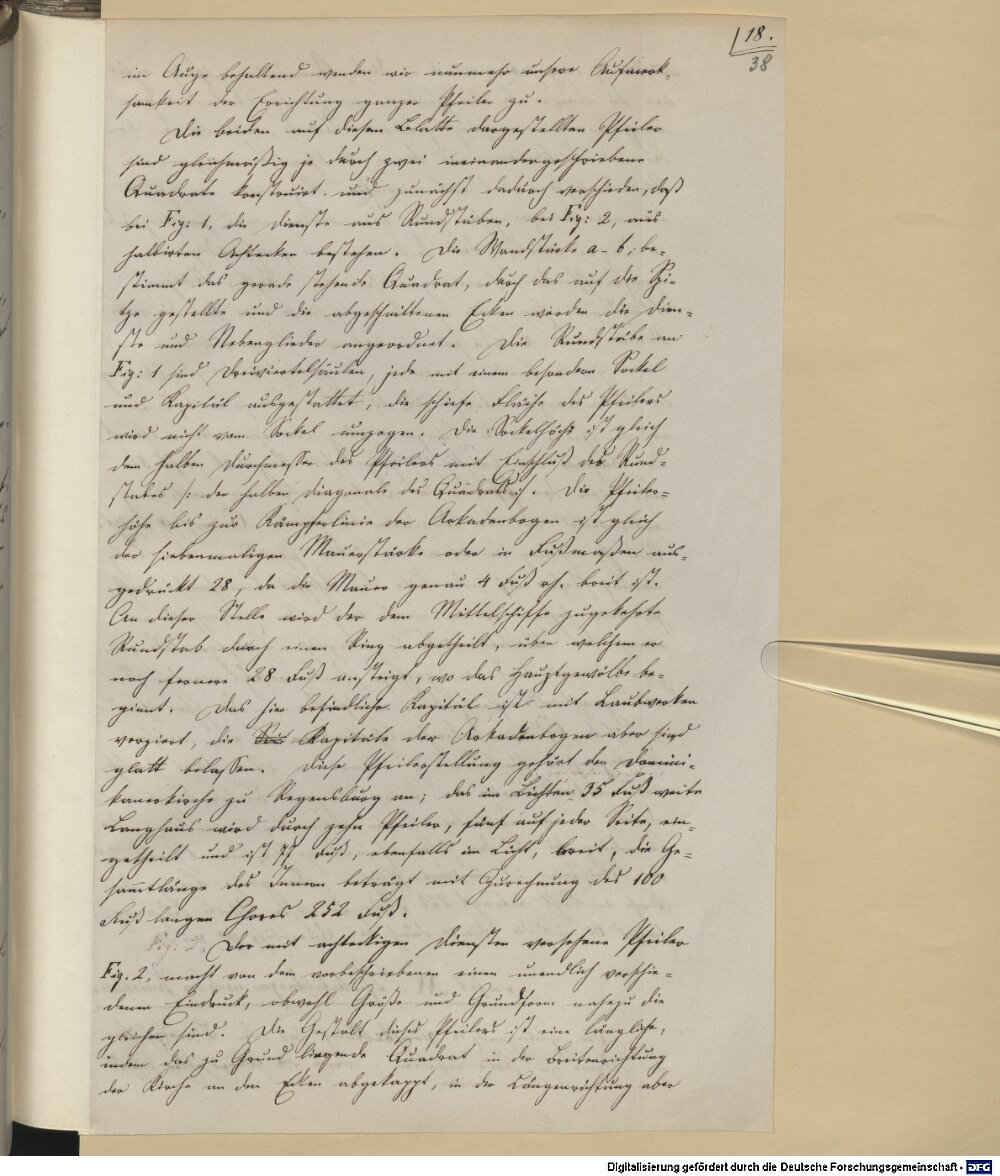 18.
38
im Auge behaltend wenden wir nunmehr unsere Aufmerk-
samkeit der Errichtung ganzer Pfeiler zu.
Die beiden auf diesem Blatte dargestellten Pfeiler
sind gleichmäßig je durch zwei ineinandergeschriebene
Quadrate konstruirt und zunächst dadurch verschieden, daß
bei Fig: 1, die Dienste aus Rundstäben, bei Fig: 2, aus
halbirten Achtecken bestehen. Die Wandstärke a - b, be-
stimmt das gerade stehende Quadrat, durch das auf die Spi-
tze gestellte und die abgeschnittenen Ecken werden die Dien-
ste und Nebenglieder angeordnet. Die Rundstäbe an
Fig: 1 sind Dreiviertelsäulen, jede mit einem besondern Sockel
und Kapitäl ausgestattet, die schiefe Fläche des Pfeilers
wird nicht vom Sockel umzogen. Die Sockelhöhe ist gleich
dem halben Durchmesser des Pfeilers mit Einschluß des Rund-
stabes /: der halben Diagonale des Quadrats :/. Die Pfeiler-
höhe bis zur Kämpferlinie der Arkadenbogen ist gleich
der siebenmaligen Mauerstärke oder in Fußmaßen aus-
gedrückt 28, da die Mauer genau 4 Fuß rh. breit ist.
An dieser Stelle wird der dem Mittelschiffe zugekehrte
Rundstab durch einen Ring abgetheilt, über welchem er
noch fernere 28 Fuß ansteigt, wo das Hauptgewölbe be-
ginnt. Das hier befindliche Kapitäl ist mit Laubwerken
verziert, die Kapitäle der Arkadenbogen aber sind
glatt belassen. Diese Pfeilerstellung gehört der Domini-
kanerkirche zu Regensburg an; das im Lichten 35 Fuß weite
Langhaus wird durch zehn Pfeiler, fünf auf jeder Seite, ein-
getheilt und ist Fuß, ebenfalls im Licht, breit, die Ge-
sammtlänge des Innern beträgt mit Zurechnung des 100
Fuß langen Chores 252 Fuß.
Der mit achteckigen Diensten versehene Pfeiler
Fig. 2, macht von dem vorbeschriebenen einen unendlich verschie-
denen Eindruck, obwohl Größe und Grundform nahezu die
gleichen sind. Die Gestalt dieses Pfeilers ist eine längliche,
indem das zu Grund liegende Quadrat in der Breitenrichtung
der Kirche an den Ecken abgekappt, in der Längenrichtung aber
Digitalisierung gefördert durch die Deutsche Forschungsgemeinschaft - DFG